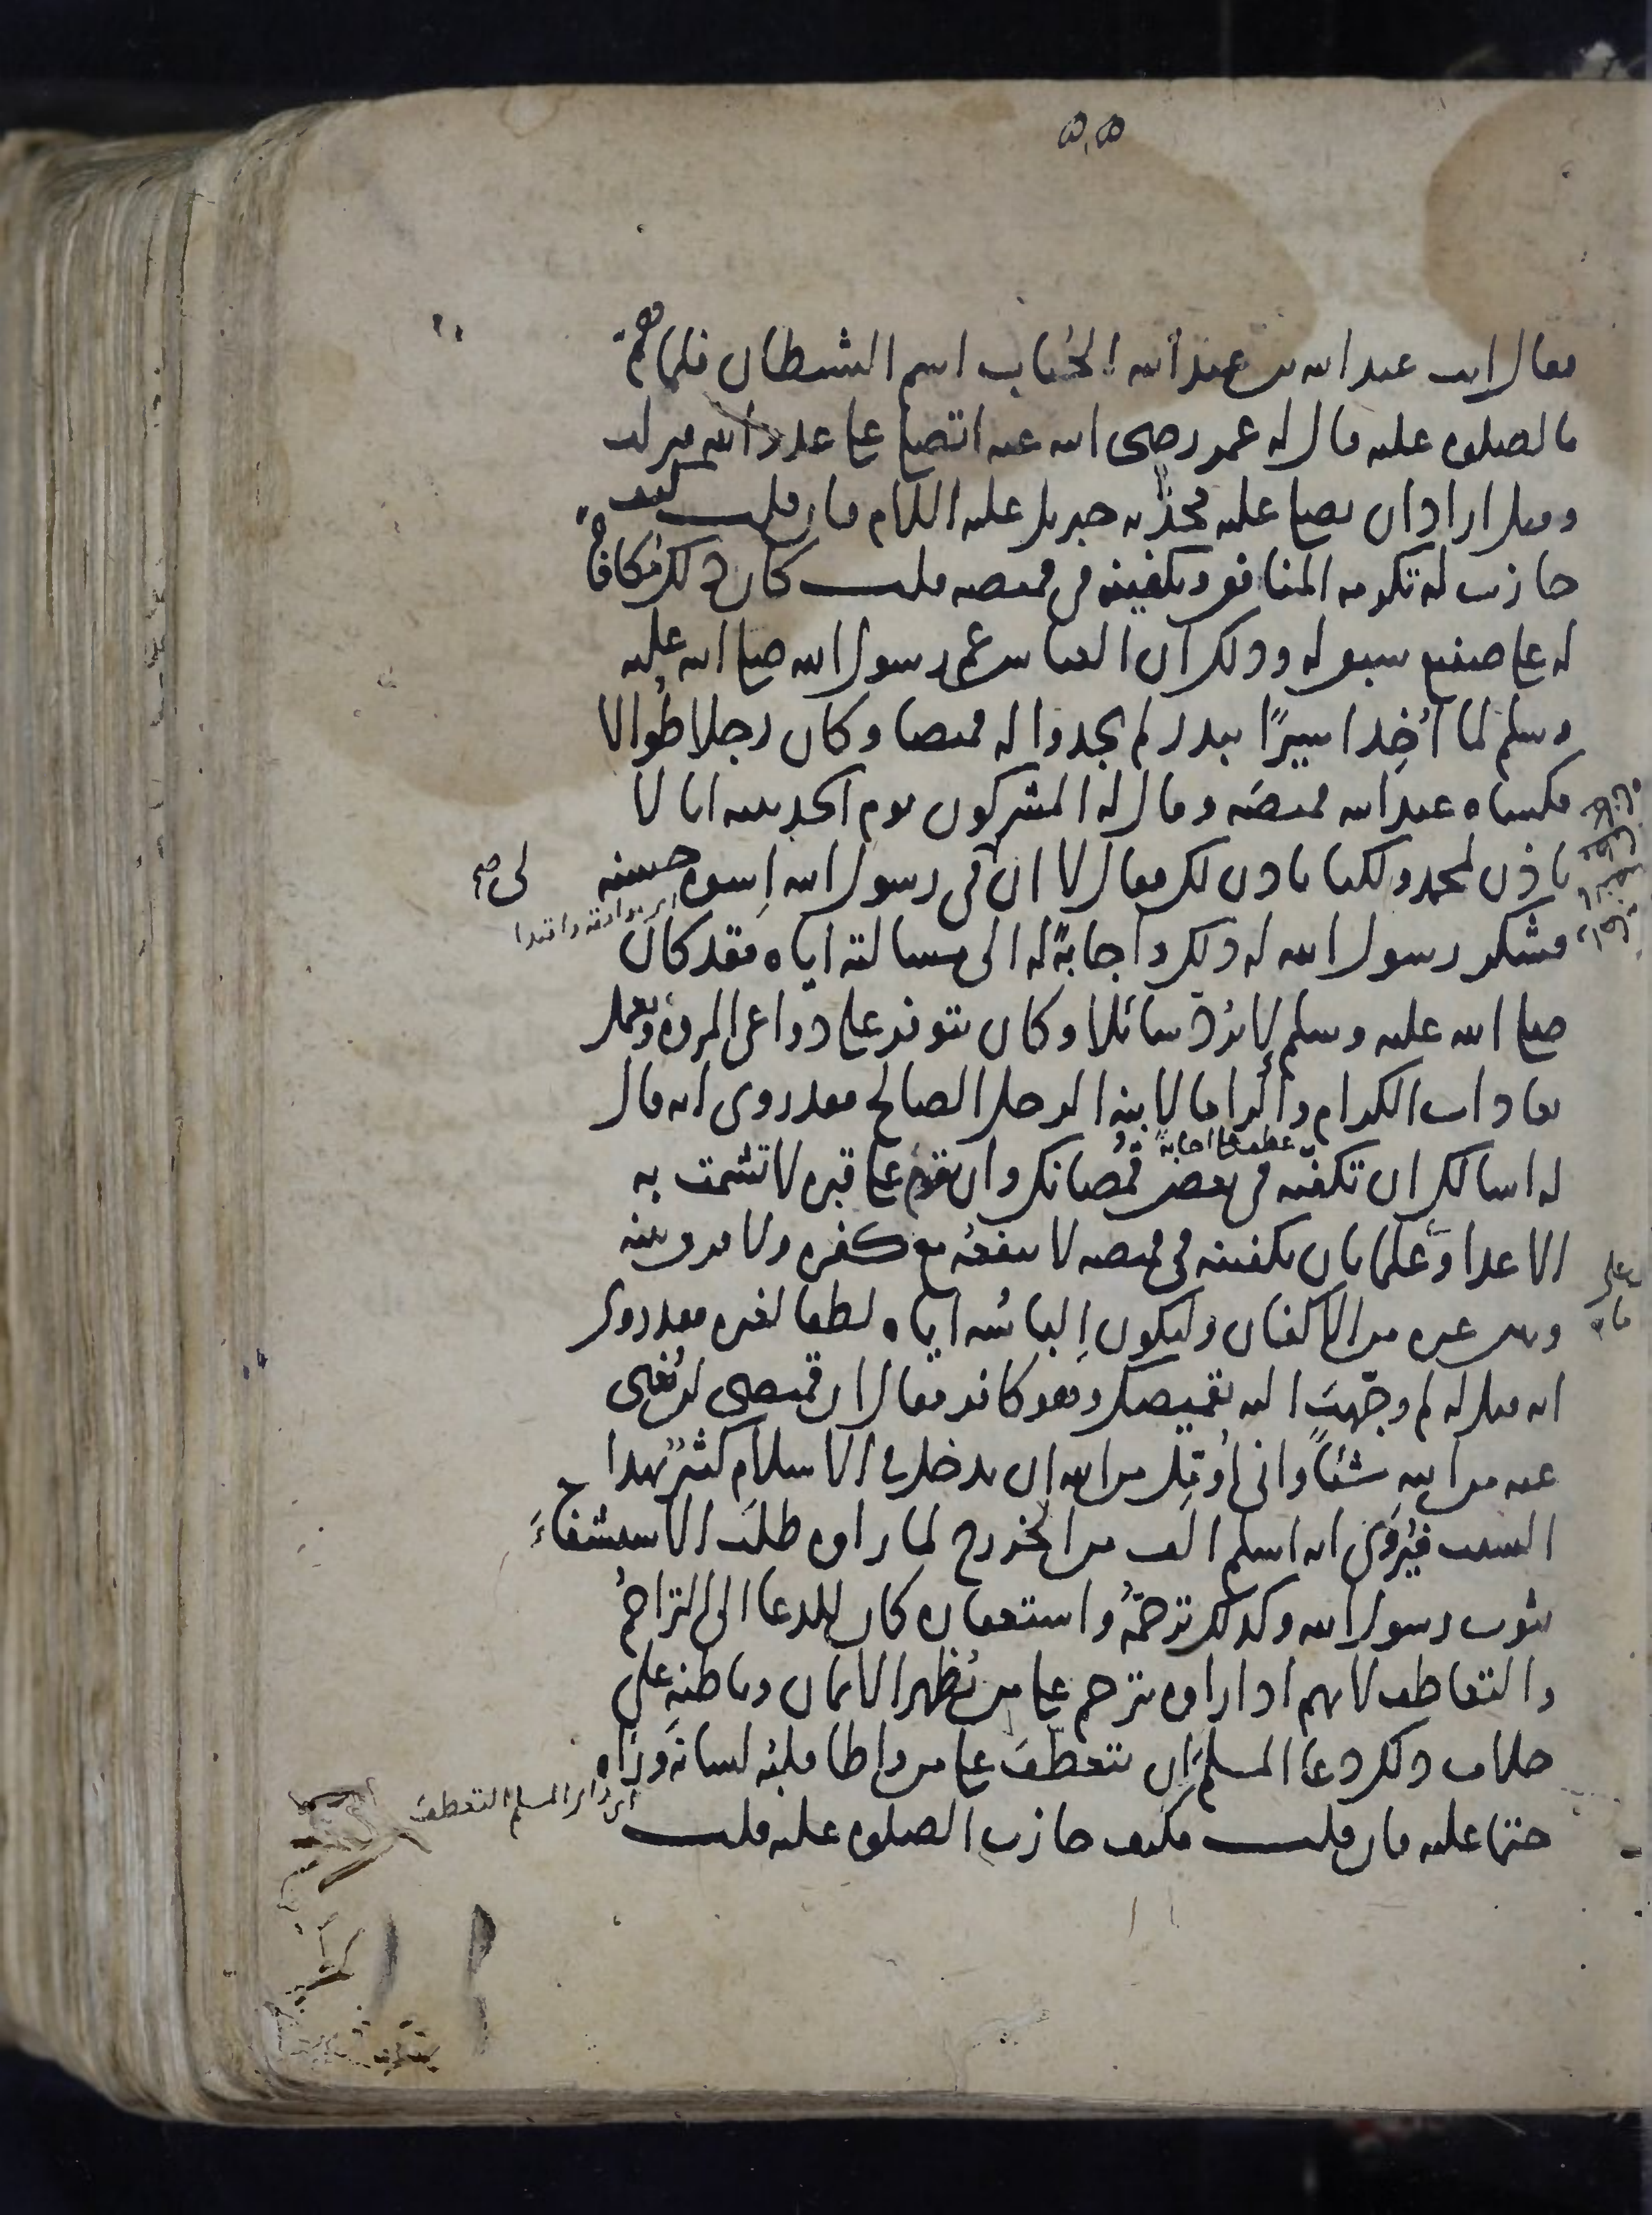 ٥٠٥
فقال انت عبد الله بن عبد الله الحباب اسم الشيطان فلما همّ
بالصلوه عليه قال له عمر رضى الله عنه اتصلى على عدو الله فنزلت
وقيل اراد ان يصلى عليه فجذبه جبريل عليه السلام فان قلت كيف
جازت له تكرمه المنافق وتكفينه فى قميصه قلت كان ذلك مكافاة
له على صنيع سبق له وذلك ان العباس عم رسول الله صلى الله عليه
وسلم لما أُخِذ اسيرًا ببدر لم يجدوا له قميصا وكان رجلا طُوالا
فكساه عبد الله قميصَه وقال له المشركون يوم الحديبيه انا لا
ناذن لمحمد ولكنا ناذن لك فقال لا ان لى فى رسول الله اِسوه حسنه
فشكر رسول الله له ذلك واجابةً له الى مسالته اياه فقد كان
صلى الله عليه وسلم لا يردّ سائلا وكان يتوفر على دواعى المروة ويعمل
بعادات الكرام واكراما لابنه الرجل الصالح فقد روى انه قال
له اسالك ان تكفّنه فى بعض قُمصانك وان تقوم على قبره لا تشمت به
الاعدا وعلما بان تكفينه فى قميصه لا ينفعه مع كفره ولا فرق بينه
وبين غيره من الاكفان وليكون اِلباسُه اياه لطفا لغيره فقد روى
انه قيل له لم وجّهتَ اليه بقميصك وهو كافر فقال ان قميصى لن يُغنى
عنه من الله شيئًا وانى اُؤمّل من الله ان يدخل فى الاسلام كثيرٌ بهذا
السبب فيُروى انه اسلم الف من الخزرج لما راوه طلبَ الاستشفاءَ
بثوب رسول الله وكذلك ترحّمُه واستغفاره كان للدعا الى التراحم
والتعاطف لانهم اذا راوه يترحم على من يُظهر الايمان وباطنه على
خلاف ذلك دعا المسلم ان يتعطّفَ على من واطا قلبُه لسانَه وراه
اى راى المسلم التعطف
حتما عليه فان قلت فكيف جازت الصلوه عليه قلت